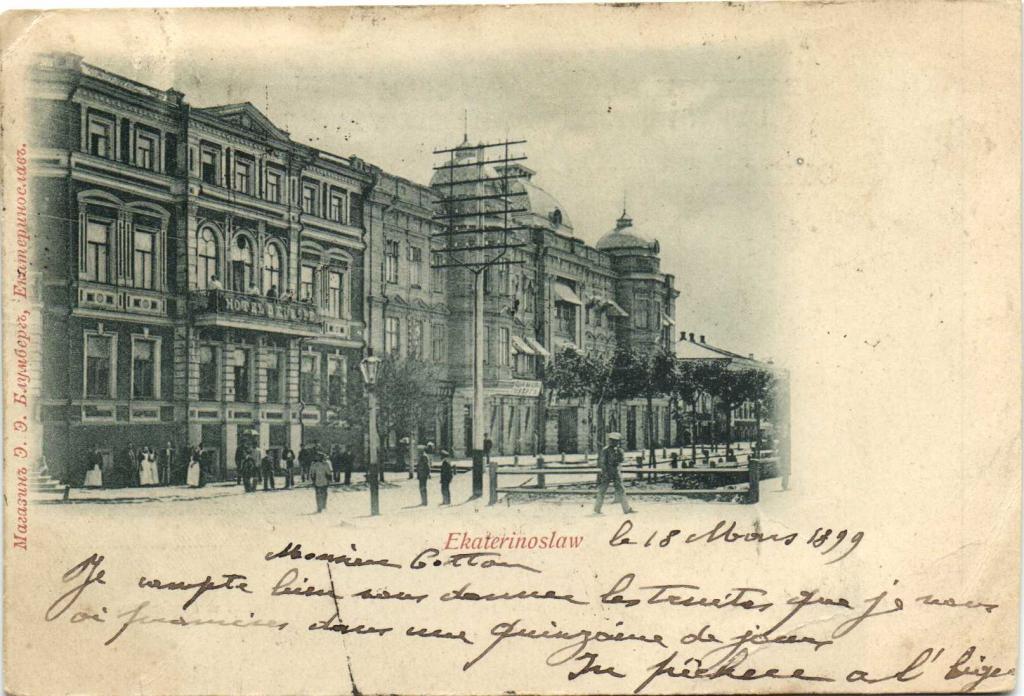 Магазинъ Э. Э. Блумбергъ, Екатеринославъ.
Ekaterinoslaw
le 18 Mars 1899
Monsieur Cotton
Je compte bien vous donner les truites que je vous
ai promises dans une quinzaine de jours
Un pêcheur a l'